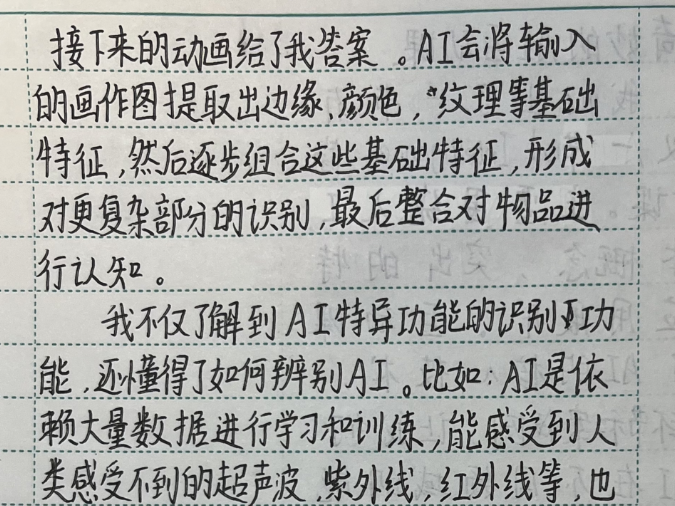 接下来的动画给了我答案。AI会将输入
的画作图提取出边缘、颜色,纹理等基础
特征,然后逐步组合这些基础特征,形成
对更复杂部分的识别,最后整合对物品进
行认知。
我不仅了解到AI特异功能的识别功
能,还懂得了如何辨别AI。比如:AI是依
赖大量数据进行学习和训练,能感受到人
类感受不到的超声波、紫外线,红外线等,也